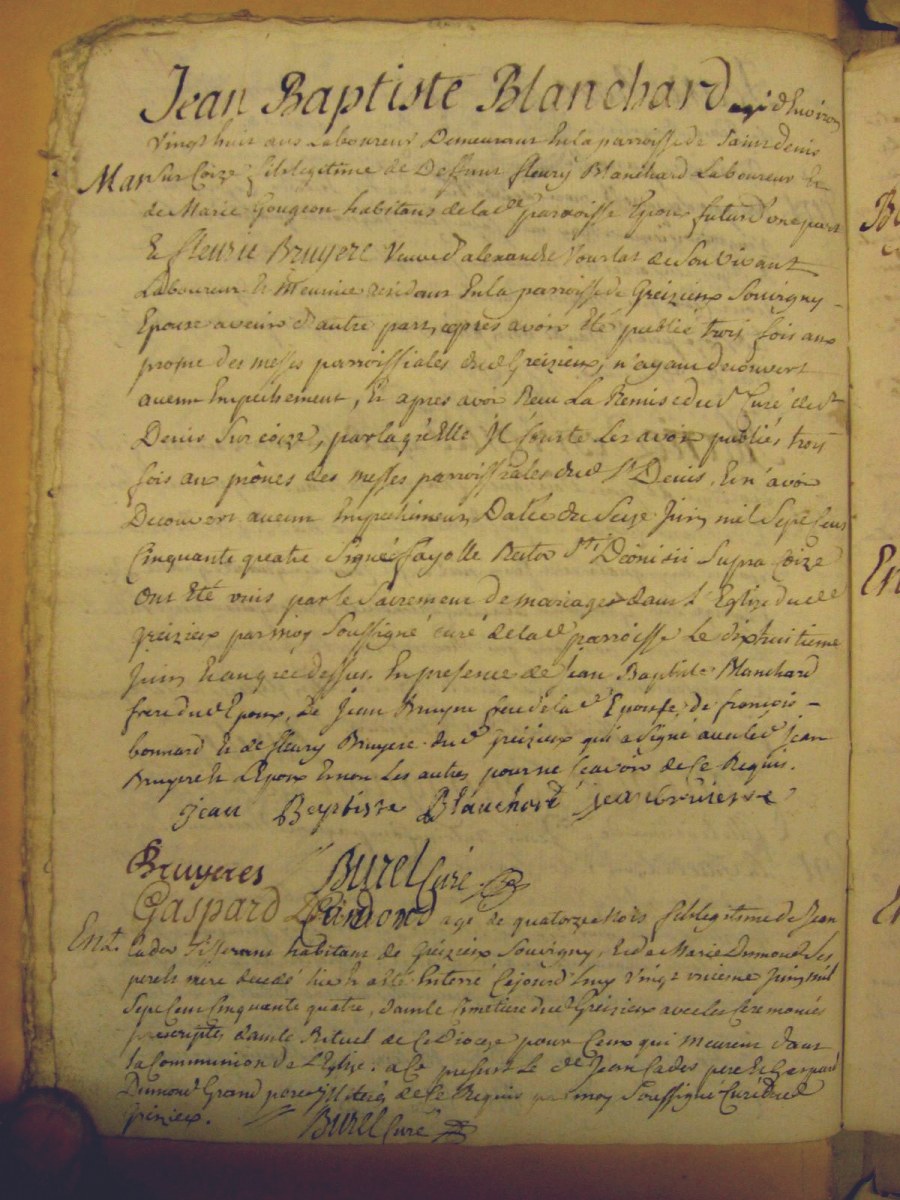 Jean Baptiste Blanchard agé d'Environ
vingt huit ans Laboureur Demeurant En la parroisse de Saint denis
Mar. sur Coize fils legitime de Deffunt fleury Blanchard Laboureur Et
de Marie Gougeon habitans de la de parroisse Epoux futur d'une part
Et fleurie Bruyere veuve d'alexandre de son vivant
Laboureur Et residant En la parroisse de Greizieux Souvigny
Epouse avenir d'autre part, apres avoir Eté publié trois fois aux
prosne des messes parroissiales dud Greizieux, n'ayant decouvert
aucun Empechement, Et apres avoir Receu La Remise du sr Curé de st
Denis sur coize, par laquelle Il Conste Les avoir publiés trois
fois aux prônes des messes parroissiales dud St Denis, Et n'avoir
Decouvert aucun Empechement, Datée du Seize Juin mil Sept Cent
Cinquante quatre Signé fayolle Rector Sti Dionisii Supra Coize
Ont Eté unis par le Sacrement de mariage dans L'Eglise dud
greizieux par moy Soussigné curé de la de parroisse Le dixhuitieme
Juin Et an que dessus. En presence de Jean Baptiste Blanchard
frere dud Epoux, de Jean Bruyere frere de la de Epouse, de françois
bonnard Et de fleury Bruyere dud Greizieux qui a Signé avec led jean
Bruyere Et L'Epoux Et non Les autres pour ne Sçavoir de Ce Requis.
jean Baptiste Blanchard jean bruiere
Bruyeres Burel Curé
Gaspard agé de quatorze mois fils legitime de Jean
Ent. habitant de Greizieux Souvigny, Et de Marie Dumond Ses
pere Et mere decedé hier Et a eté Enterré Cejourd'huy vingt unieme Juin mil
Sept Cent Cinquante quatre, dans le Cimetiere dud Greizieux avec les Ceremonies
prescriptes dans le Rituel de Ce Dioceze pour Ceux qui meurent dans
la Communion de L'Eglise. a Ce present Le dt Jean pere Et Gaspard
Dumond Grand pere Illiterés de Ce Requis par moy Soussigné Curé dud
grizieux. Burel Curé